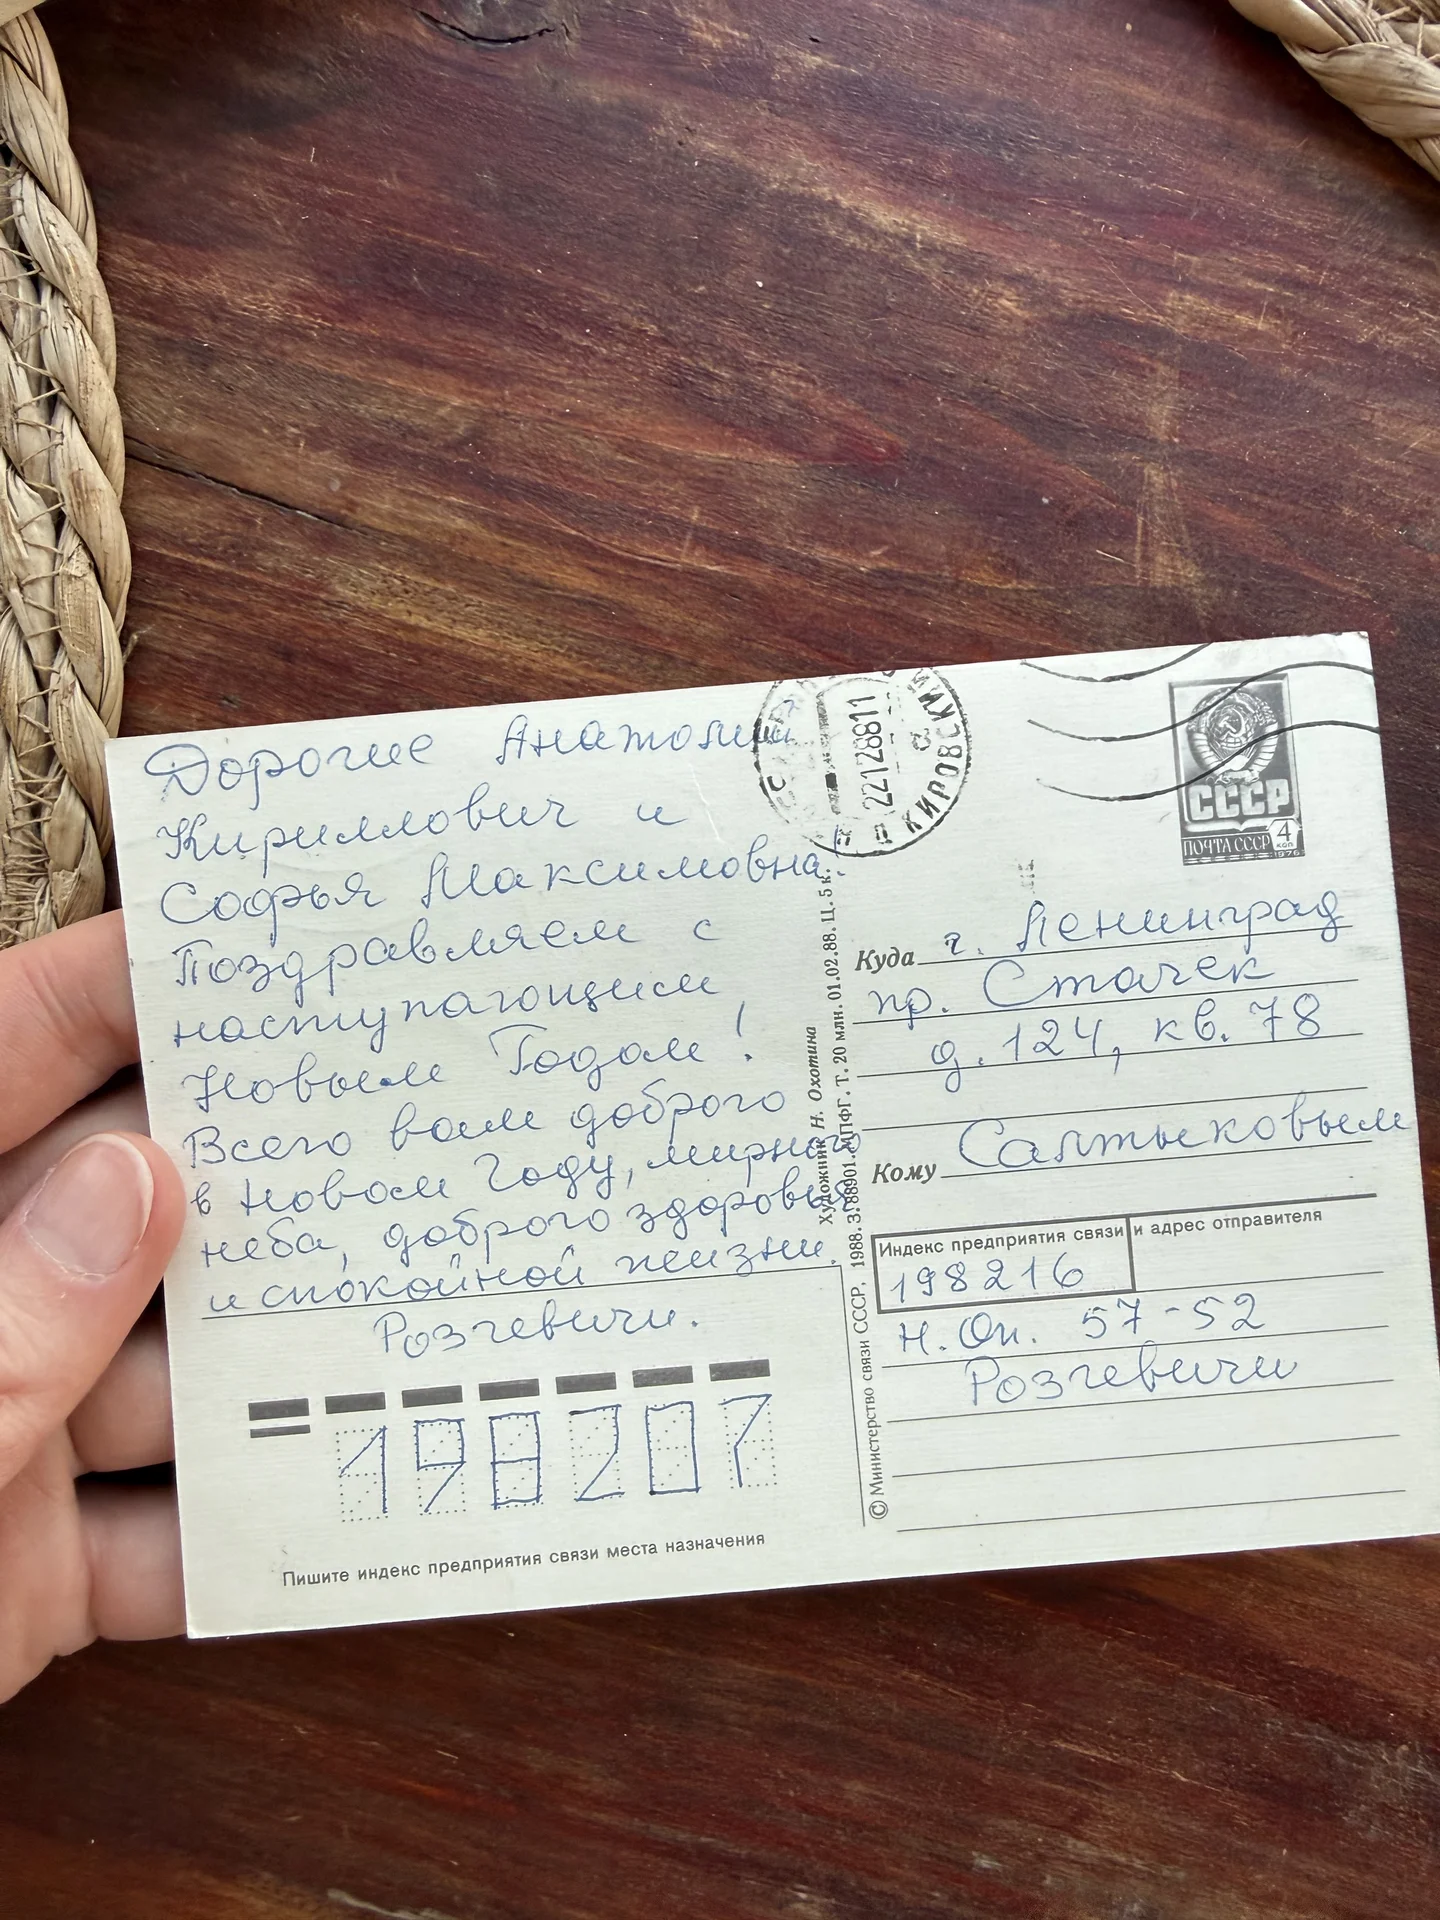 Дорогие Анатолий
Кириллович и
Софья Максимовна!
Поздравляем с
наступающим
Новым Годом!
Всего вам доброго
в Новом Году, мирного
неба, доброго здоровья
и спокойной жизни.
Розгевичи.
198207
Пишите индекс предприятия связи места назначения
© Министерство связи СССР, 1988. З. 88901. МПФГ. Т. 20 млн. 01.02.88. Ц. 5 к.
Художник Н. Охотина
22128811
КИРОВСКИЙ
СССР
ПОЧТА СССР 4 КОП
1976
Куда г. Ленинград
пр. Стачек
д. 124, кв. 78
Кому Салтыковым
Индекс предприятия связи и адрес отправителя
198216
Н. Оп. 57-52
Розгевичи